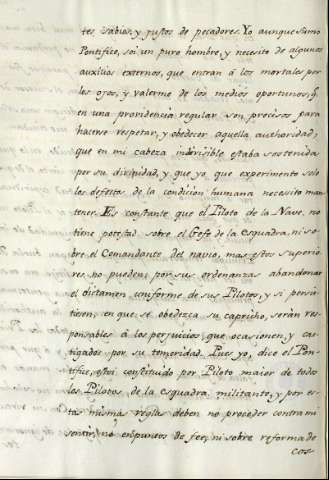 tes, sabios, y justos de pecadores. Yo aunque Sumo
Pontifice, soi un puro hombre, y necesito de algunos
auxilios externos, que entran á los mortales por
los ojos, y valerme de los medios oportunos, q̃.
en una providencia regular son precisos para
hacerse respetar, y obedecer aquella authoridad,
que en mi cabeza invisible estaba sostenida
por su divinidad, y que yo que experimento solo
los defectos de la condicion humana necesito man
tener. Es constante que el Piloto de la Nave, no
tiene potestad sobre el Gefe de la esquadra, ni so-
bre el Comandante del navio, mas estos superio
res no pueden, por sus ordenanzas abandonar
el dictamen uniforme de sus Pilotos, y si persis
tiesen, en que se obedezca su capricho, serán res-
ponsables á los perjuicios, que ocasionen, y cas
tigados por su temeridad. Pues yo, dice el Pon-
tifice, estoi constituido por Piloto maior de todos
los Pilotos de la esquadra militante, y por es-
tas mismas reglas deben no proceder contra mi
sentir, no en puntos de fee, ni sobre reforma de
cos-